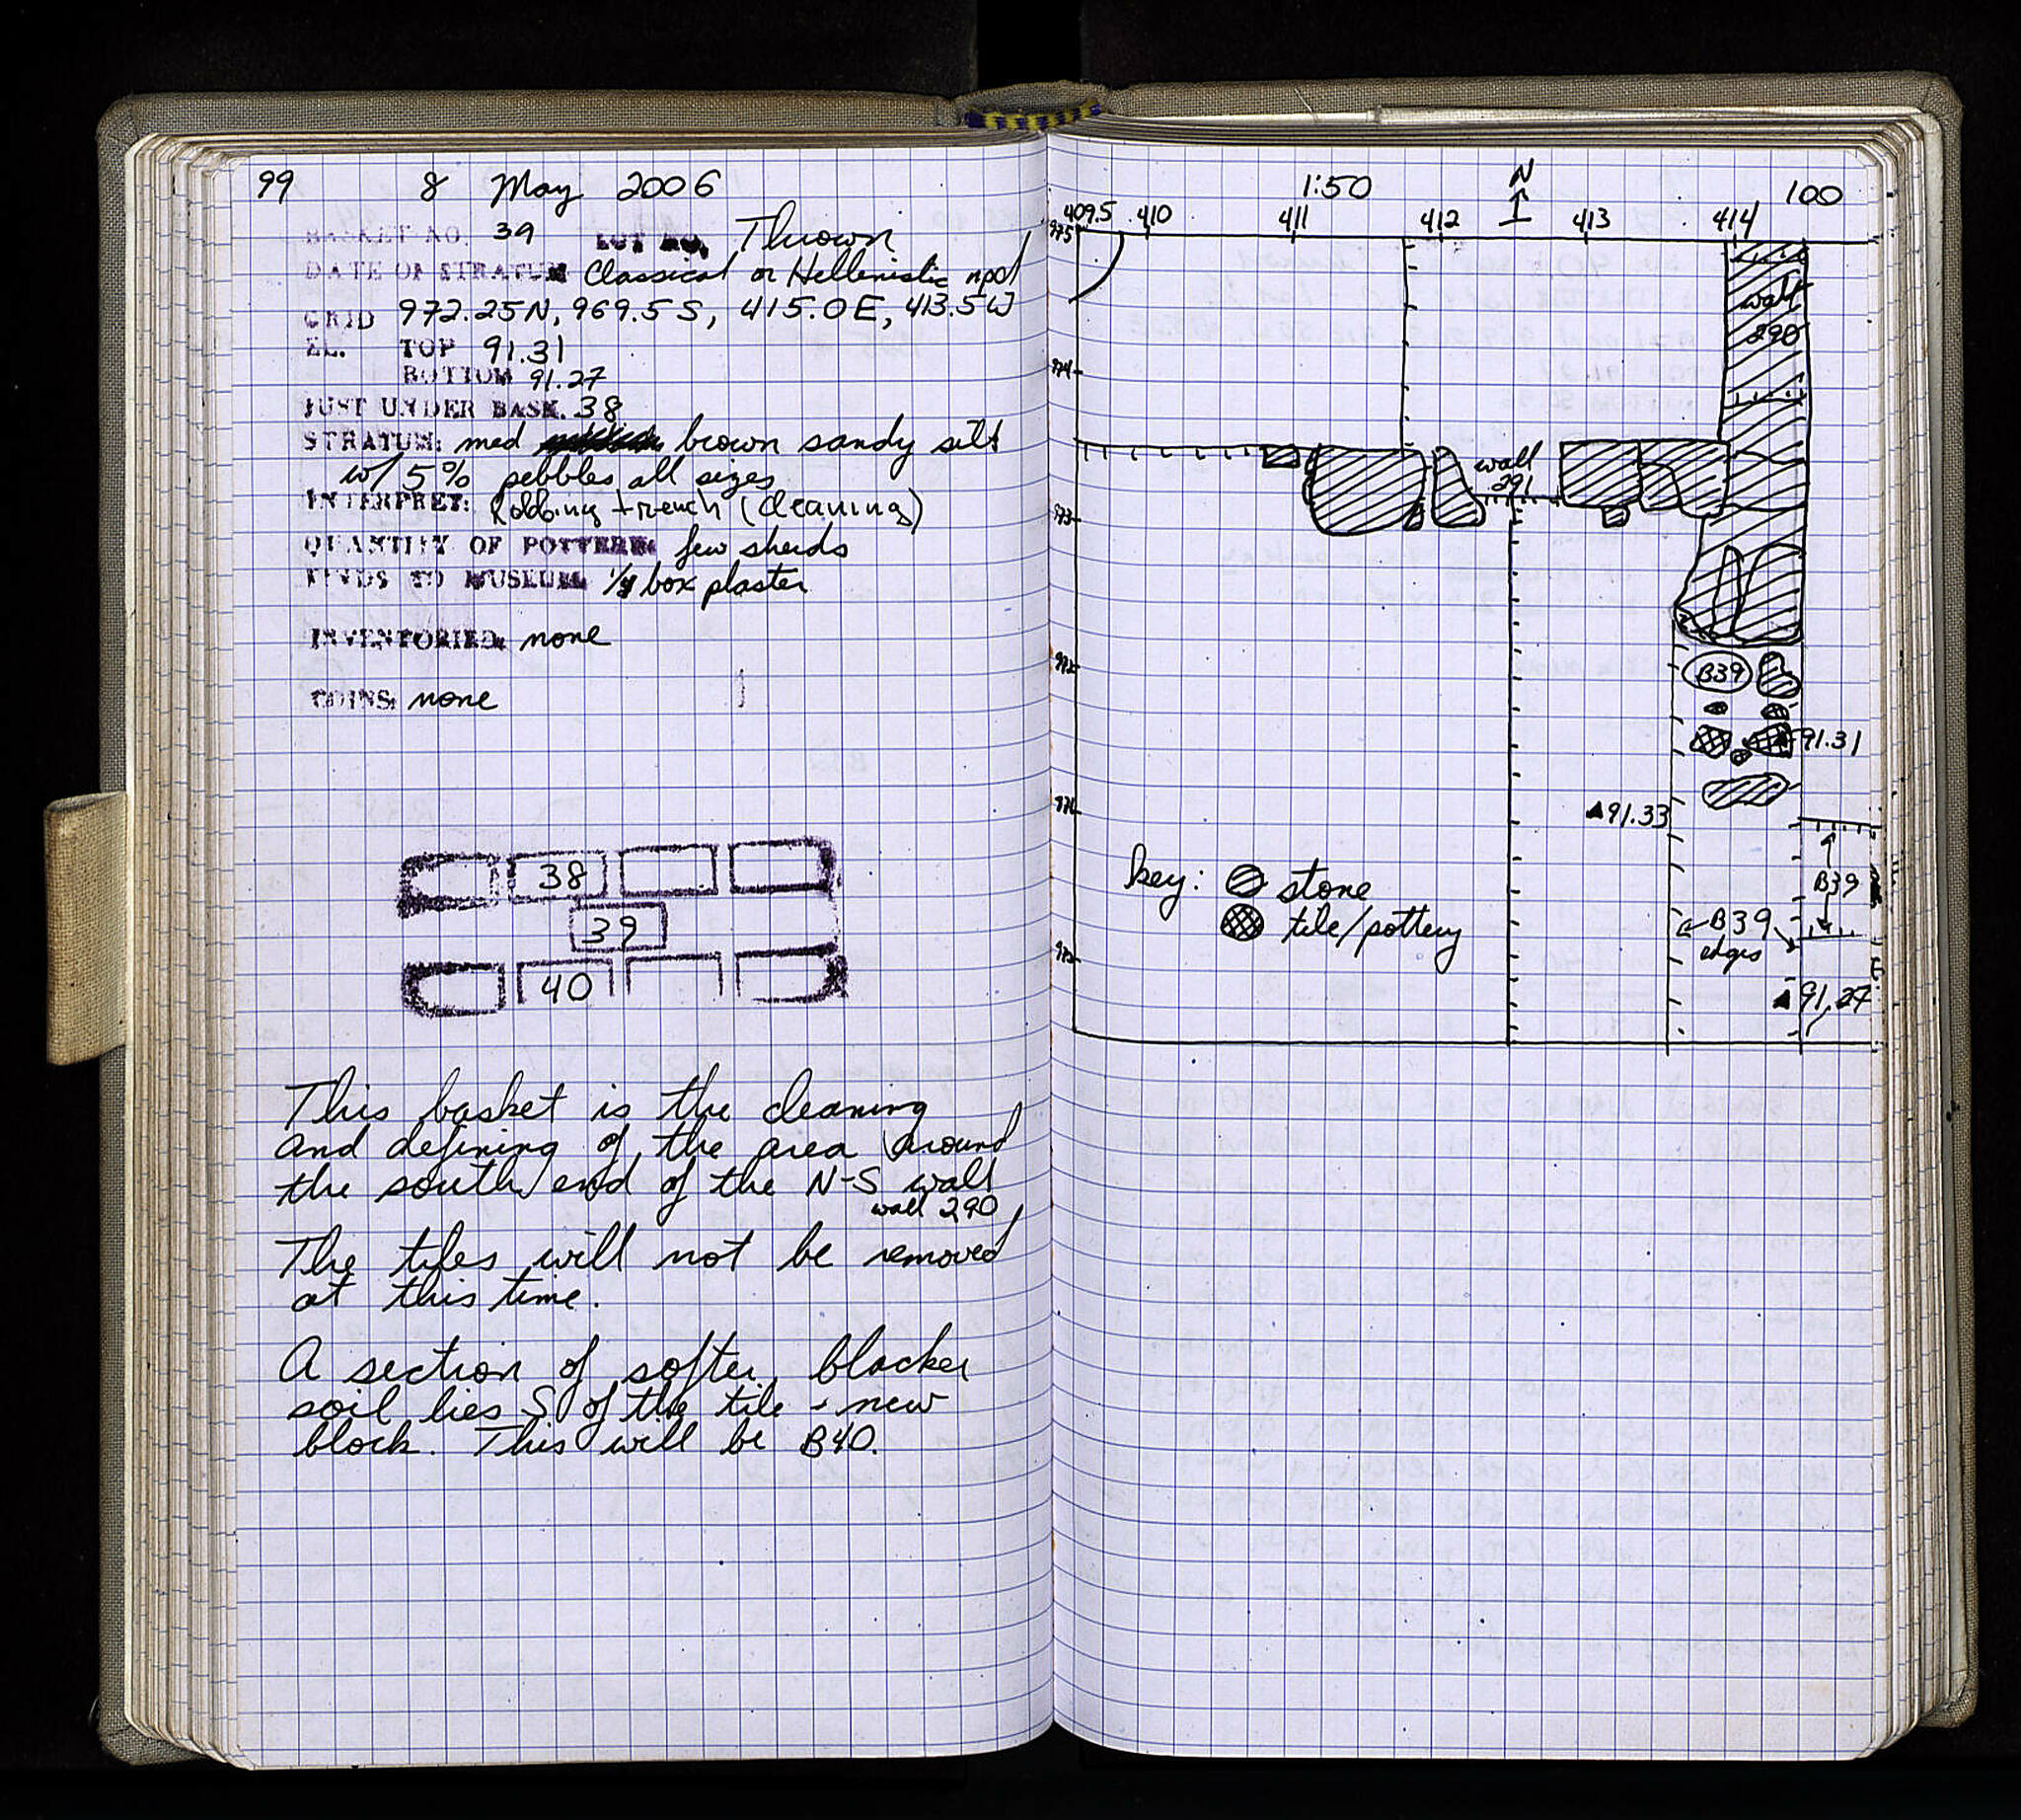 99 8 May 2006
BASKET NO. 39 LOT NO. Thrown
DATE OF STRATUM Classical or Hellenistic npd
GRID 972.25N, 969.5 S, 415.0E, 413.5W
EL. TOP 91.31
BOTTOM 91.27
JUST UNDER BASK. 38
STRATUM: med brown sandy silt
w/ 5% pebbles all sizes
INTERPRET: Robbing trench (cleaning)
QUANTITY OF POTTERY: few sherds
FINDS TO MUSEUM: box plaster
INVENTORIED: none
COINS: none
38
39
40
This basket is the cleaning
and defining of the area around
the south end of the N-S wall
wall 290
The tiles will not be removed
at this time.
A section of softer, blacker
soil lies S of the tile new
block. This will be B40.
1:50 N 100
409.5 410 411 412 413 414
975
wall
290
974
wall
291
973
972
B39
91.31
971
91.33
key: stone
tile/pottery
B39
B39
edges
91.27